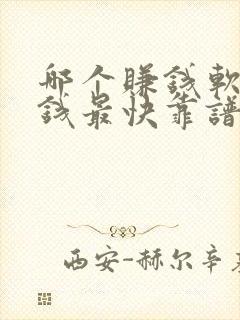 哪个賺錢軟
錢最快靠譜
西安-赫尔辛